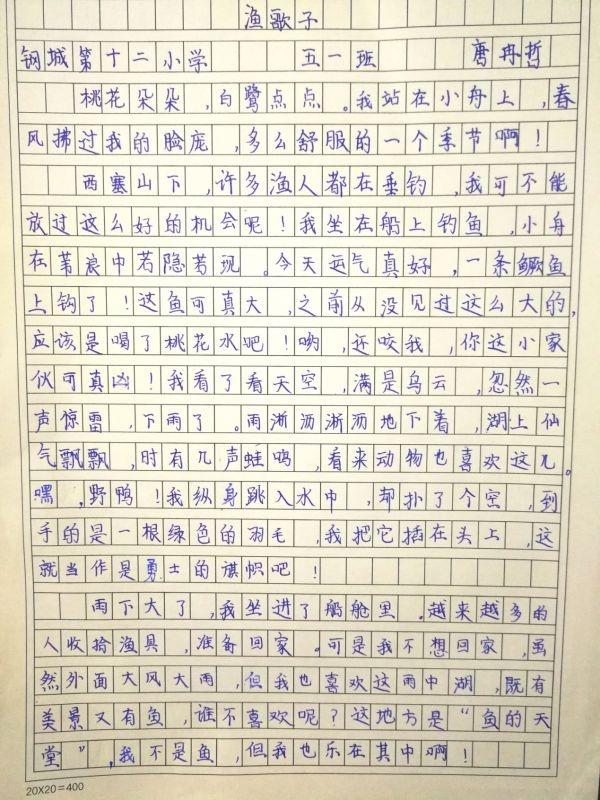 渔歌子
钢城第十二小学 五一班 唐冉哲
桃花朵朵,白鹭点点。我站在小舟上,春
风拂过我的脸庞,多么舒服的一个季节啊!
西塞山下,许多渔人都在垂钓,我可不能
放过这么好的机会呢!我坐在船上钓鱼,小舟
在苇浪中若隐若现。今天运气真好,一条鳜鱼
上钩了!这鱼可真大,之前从没见过这么大的,
应该是喝了桃花水吧!哟,还咬我,你这小家
伙可真凶!我看了看天空,满是乌云,忽然一
声惊雷,下雨了。雨淅沥淅沥地下着,湖上仙
气飘飘,时有几声蛙鸣,看来动物也喜欢这儿。
嘿,野鸭!我纵身跳入水中,却扑了个空,到
手的是一根绿色的羽毛,我把它插在头上,这
就当作是勇士的旗帜吧!
雨下大了,我坐进了船舱里。越来越多的
人收拾渔具,准备回家。可是我不想回家,虽
然外面大风大雨,但我也喜欢这雨中湖,既有
美景又有鱼,谁不喜欢呢?这地方是“鱼的天
堂”,我不是鱼,但我也乐在其中啊!
20X20=400